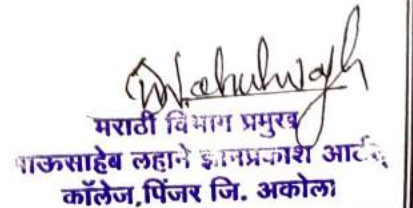 मराठी विभाग प्रमुख
भाऊसाहेब लहाने ज्ञानप्रकाश आर्टस्
कॉलेज,पिंजर जि. अकोला